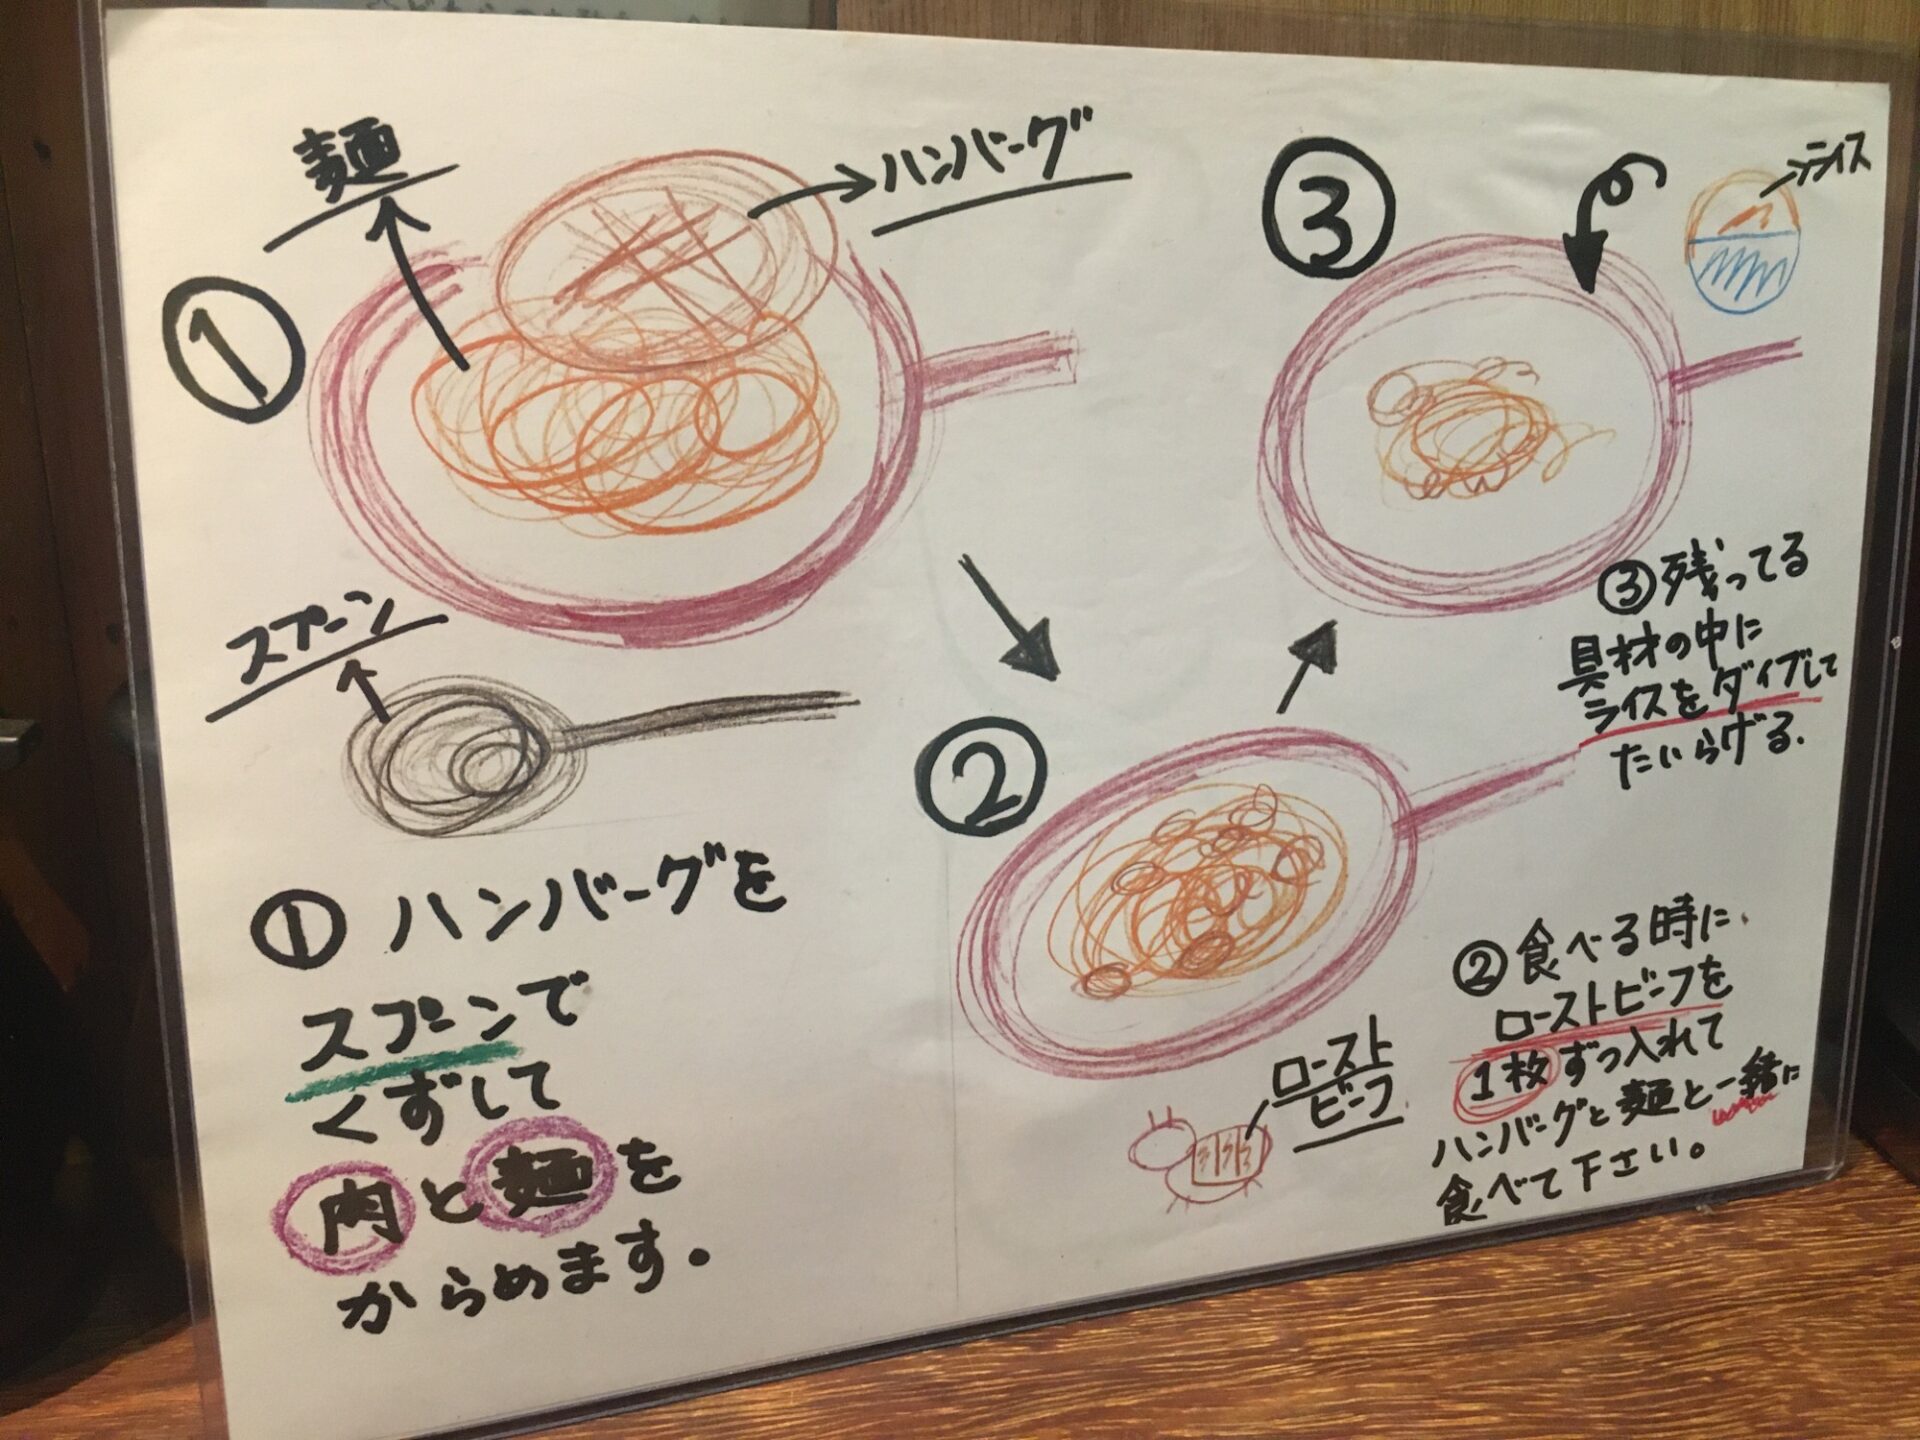 麺
ハンバーグ
①
スプーン
①ハンバーグを
スプーンで
くずして
肉と麺を
からめます。
②
ロースト
ビーフ
②食べる時に、
ローストビーフを
1枚ずつ入れて
ハンバーグと麺と一緒に
食べて下さい。
③
ライス
③残ってる
具材の中に
ライスをダイブして
たいらげる.